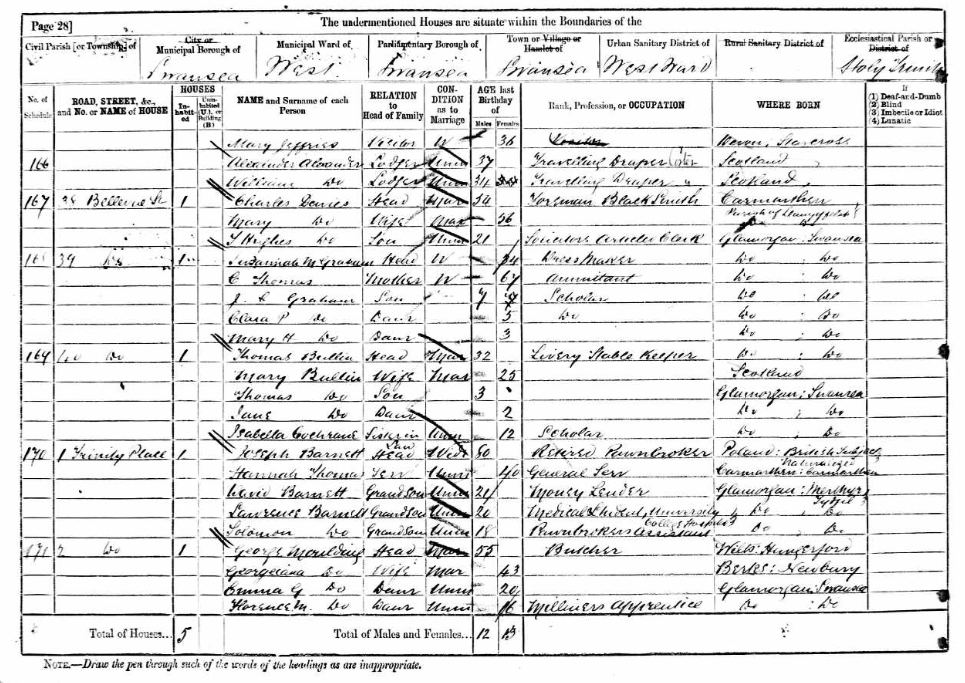 Page 28]
The undermentioned Houses are situate within the Boundaries of the
Civil Parish [or Township] of
City or Municipal Borough of Swansea
Municipal Ward of West
Parliamentary Borough of Swansea
Town or Village or Hamlet of Swansea
Urban Sanitary District of West Ward
Rural Sanitary District of
Ecclesiastical Parish or District of Holy Trinity
No. of Schedule ROAD, STREET, &c., and No. or NAME of HOUSE HOUSES Inhabited Uninhabited (U.), or Building (B) NAME and Surname of each Person RELATION to Head of Family CONDITION as to Marriage AGE last Birthday of Males Females Rank, Profession, or OCCUPATION WHERE BORN If (1) Deaf-and-Dumb (2) Blind (3) Imbecile or Idiot (4) Lunatic
Mary Jeffries Visitor W 36 Devon, Starcross
166 Alexander Alexander Lodger Unm 37 Travelling Draper Scotland
William Do Lodger Unm 34 Travelling Draper Scotland
167 38 Bellevue St 1 Charles Davies Head Mar 54 Foreman Black Smith Carmarthen
Mary Do Wife Mar 56 Parish of
T Hughes Do Son Unm 21 Solicitors Articled Clerk Glamorgan, Swansea
168 39 Do 1 Suzannah M Graham Head W 34 Dress Maker Do Do
C Thomas Mother W 67 Annuitant Do Do
J. C Graham Son 7 Scholar Do Do
Clara P Do Daur 5 Do Do Do
Mary H Do Daur 3 Do Do
169 40 Do 1 Thomas Bullin Head Mar 32 Livery Stable Keeper Do Do
Mary Bullin Wife Mar 25 Scotland
Thomas Do Son 3 Glamorgan; Swansea
Jane Do Daur 2 Do ; Do
Isabella Cochrane Sister in Law Unm 12 Scholar Do ; Do
170 1 Trinity Place 1 Joseph Barnett Head Wid 80 Retired Pawnbroker Poland: British Subject
Hannah Thomas Serv Unm 40 General Serv Carmarthen: Carmarthen
David Barnett Grandson Unm 21 Money Lender Glamorgan: Merthyr Tydfil
Lawrence Barnett Grandson Unm 20 Medical Student, University College Hospital Do : Do
Solomon Do Grandson Unm 18 Pawnbrokers Assistant Do : Do
171 2 Do 1 George Moulding Head Mar 55 Butcher Wilts: Hungerford
Georgeiana Do Wife Mar 43 Berks: Newbury
Emma G Do Daur Unm 20 Glamorgan: Swansea
Florence M. Do Daur Unm 16 Milliners Apprentice Do : Do
Total of Houses... 5 Total of Males and Females... 12 13
NOTE.—Draw the pen through such of the words of the headings as are inappropriate.